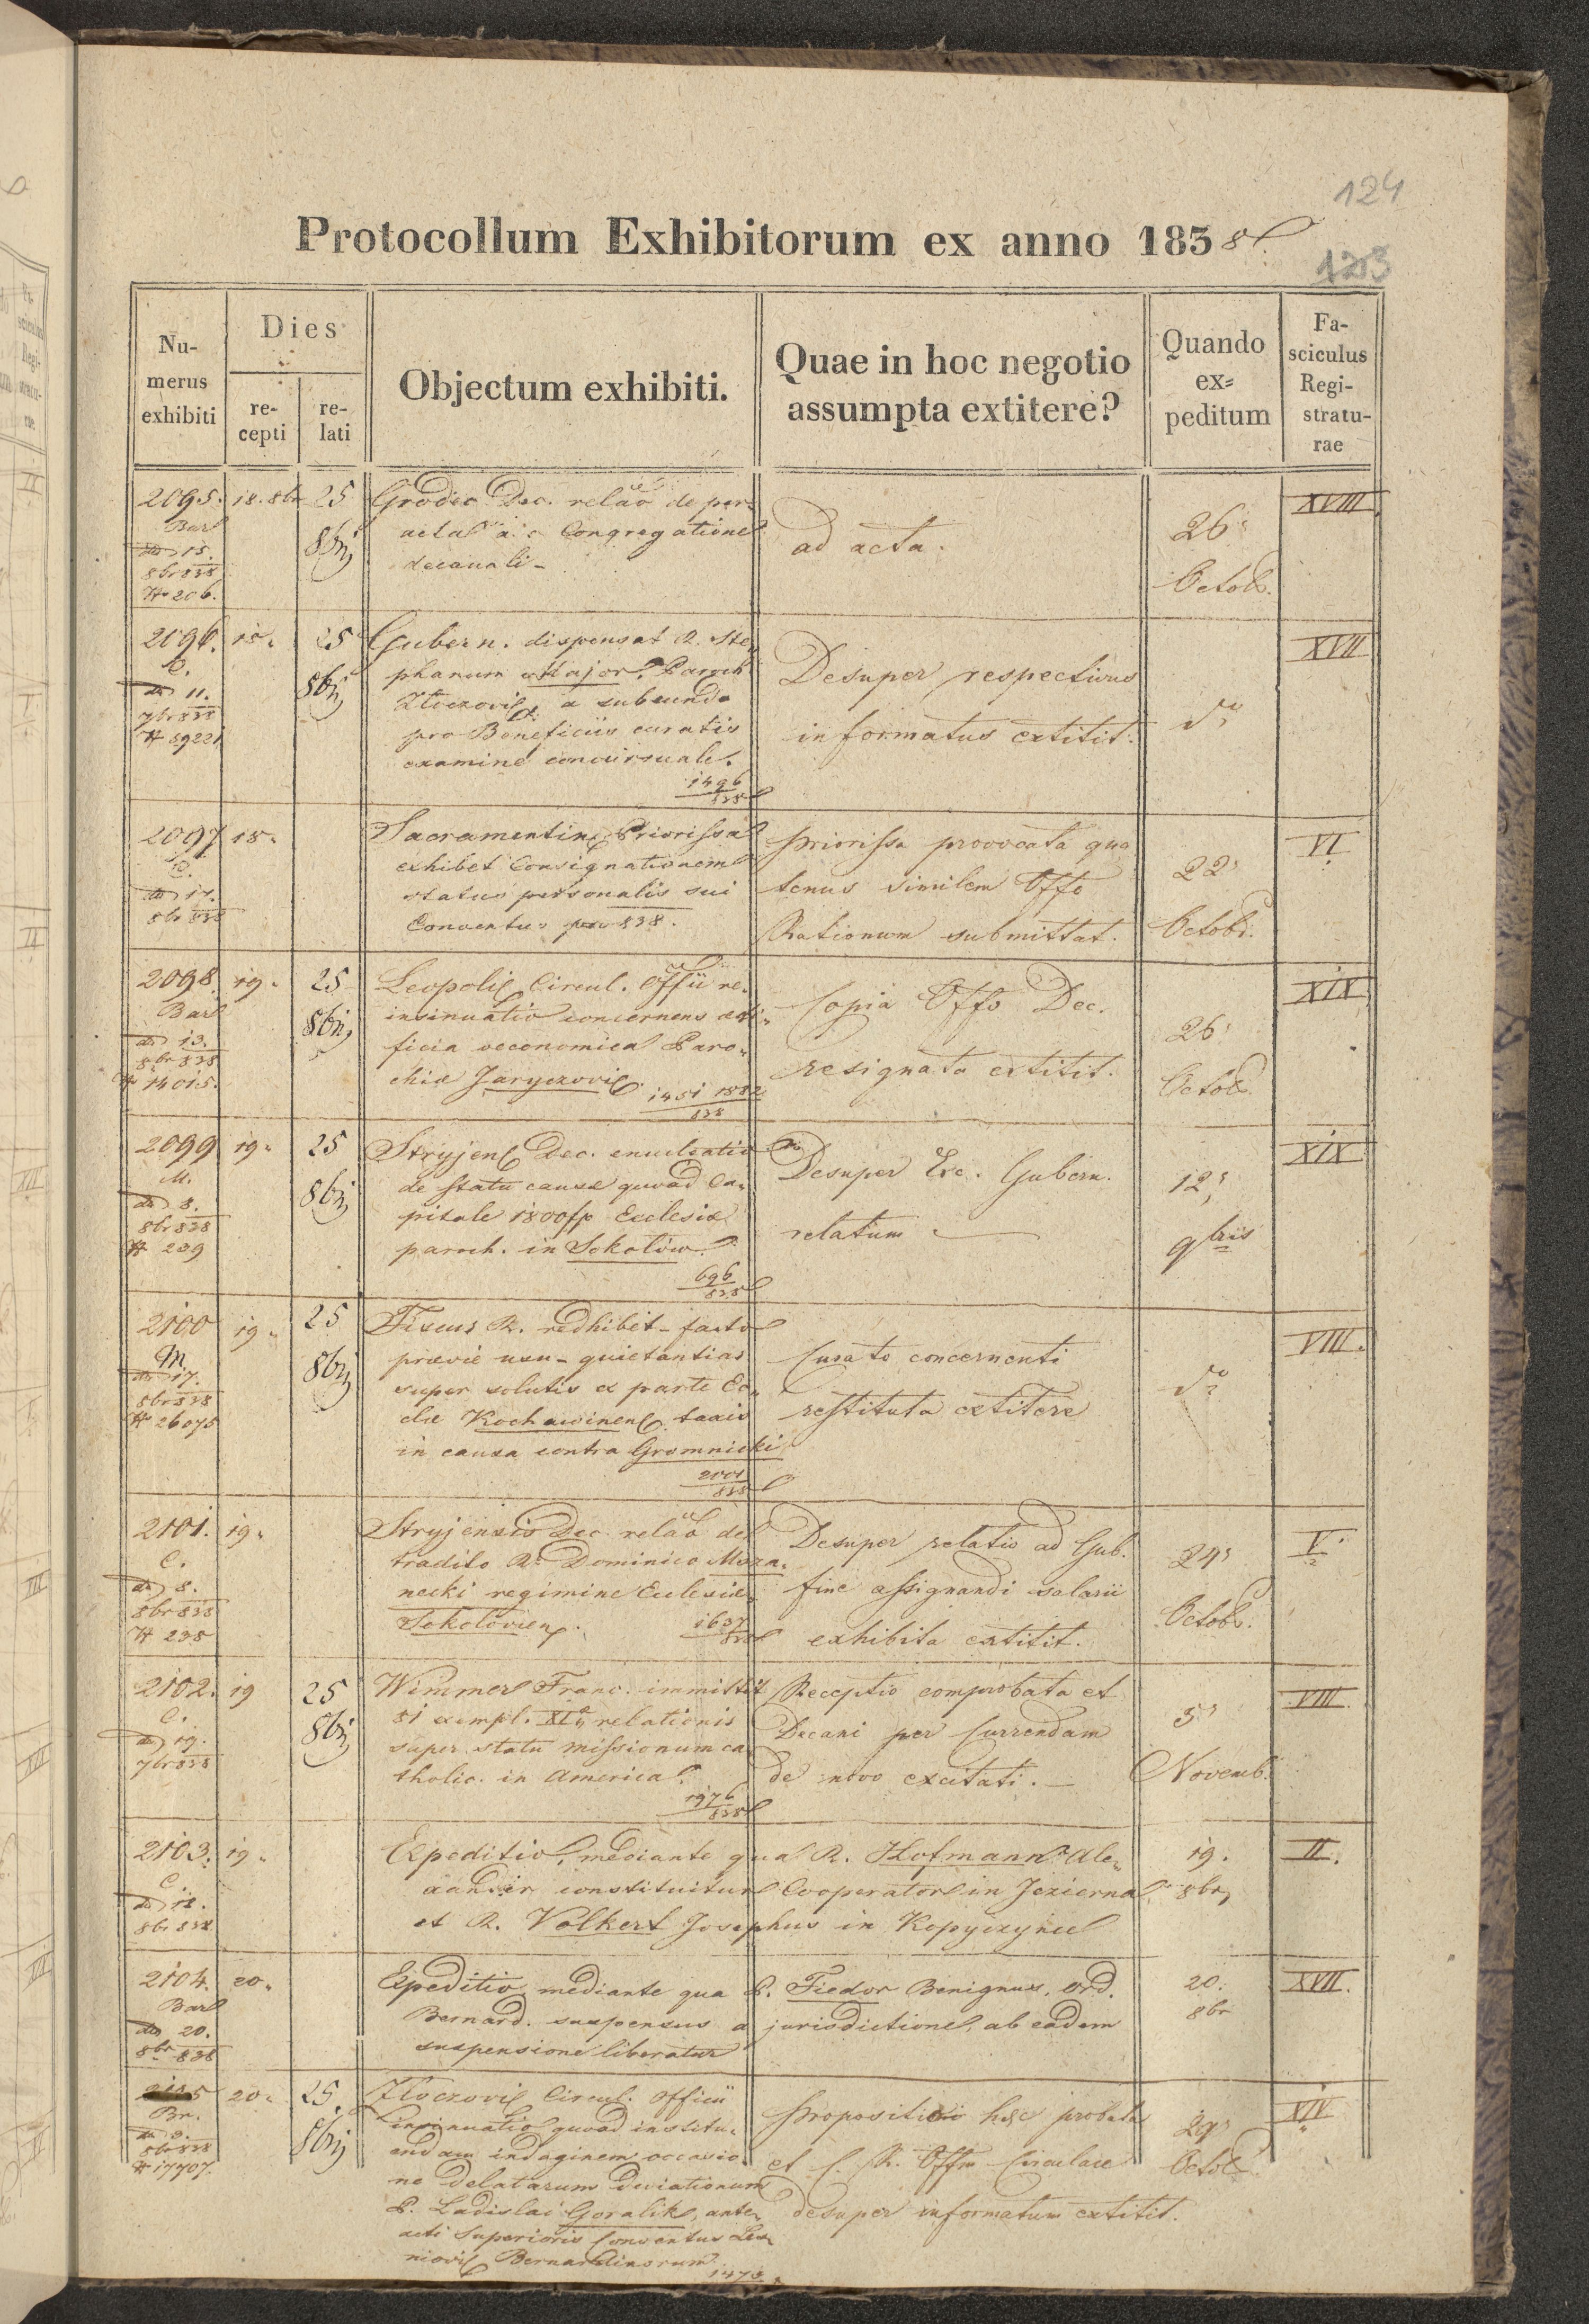 124
Protocollum Exhibitorum ex anno 1838
123
Numerus exhibiti
Dies
recepti
relati
Objectum exhibiti.
Quae in hoc negotio assumpta extitere?
Quando ex=peditum
Fasciculus Registraturae
2095. 18. 8br 25 Grodec Dec. relāo de per= XVIII
Bar 8bris acta a. c. Congregatione ad acta. 26
15. decanali
8br 838 Octob.
# 206.
2096. 18. 25 Gubern. dispensat R. Ste= XVII
C. 8bris phanum Major, Paroch Desuper respectivus
11. Zloczovi a subeundo
7br 838 pro Beneficiis curatis informatus extitit. do
# 59221 examine concursuale.
1496
838
2097 18. Sacramentin. Priorissa Priorissa provocata qua VI
C. exhibet Consignationem 22
17. status personalis sui tenus similem Offo
8br 838 Conventus pro 838. Rationum submittat. Octob.
2098. 19. 25 Leopoli Circul. Offii re= XIX
Bar 8bris insinuatio concernens aedi= Copia Offo Dec. 26
13. ficia oeconomica Paro=
8br 838 chiae Jaryczovi resignata extitit. Octob.
# 14015. 1451 1882
838
2099 19. 25 Stryjen Dec. enucleatio XIX
M. 8bris de statu causae quoad Ca= Desuper Exc. Gubern. 12
8. pitale 1800 fr Ecclesiae
8br 838 paroch. in Sokolów relatum 9bris
# 239 696
838
2100 19. 25 Fiscus R. redhibet facto VIII.
M. 8bris praevie usu quietantias Curato concernenti
17. super solutis ex parte Ec=
8br 838 clae Kochawinen taxis restituta extitere do
# 26075 in causa contra Gromnicki
2001
838
2101. 19. Stryjensis Dec. relāo de Desuper relatio ad Gub. V.
C. tradito R. Dominico Mora= 24
8. necki regimine Ecclesiae fine assignandi salarii
8br 838 Sokolovien. 1637 Octob.
# 238 838 exhibita extitit.
2102. 19 25 Wimmer Franc. immittit Receptio comprobata et VIII.
C. 8bris 81 exempl. XI relationis 5
19. super statu missionum ca= Decani per Currendam
7br 838 tholic. in America. de novo excitati. Novemb.
1976
838
2103. 19. Expeditio, mediante qua R. Hofmann Ale= 19. II.
C. xander constituitur Cooperator in Jezierna 8br
18.
8br 838 et R. Volkert Josephus in Kopyczynce
2104. 20. Expeditio mediante qua P. Fiedor Benignus, Ord. 20. XVII.
Bar Bernard. suspensus a jurisdictione, ab eadem 8br
20. suspensione liberatur
8br 838
2105 20. 25. Zloczovi Circul. Officii XIV
Br. 8bris insinuatio quoad institu= Propositio haec probata 29
3. endam indaginem occasio=
8br 838 ne delatarum deviationum et C. R. Offm Circulare Octob.
# 17707. P. Ladislai Goralik, ante= desuper informatum extitit.
acti Superioris Conventus Les=
niovi Bernardinorum.
1473